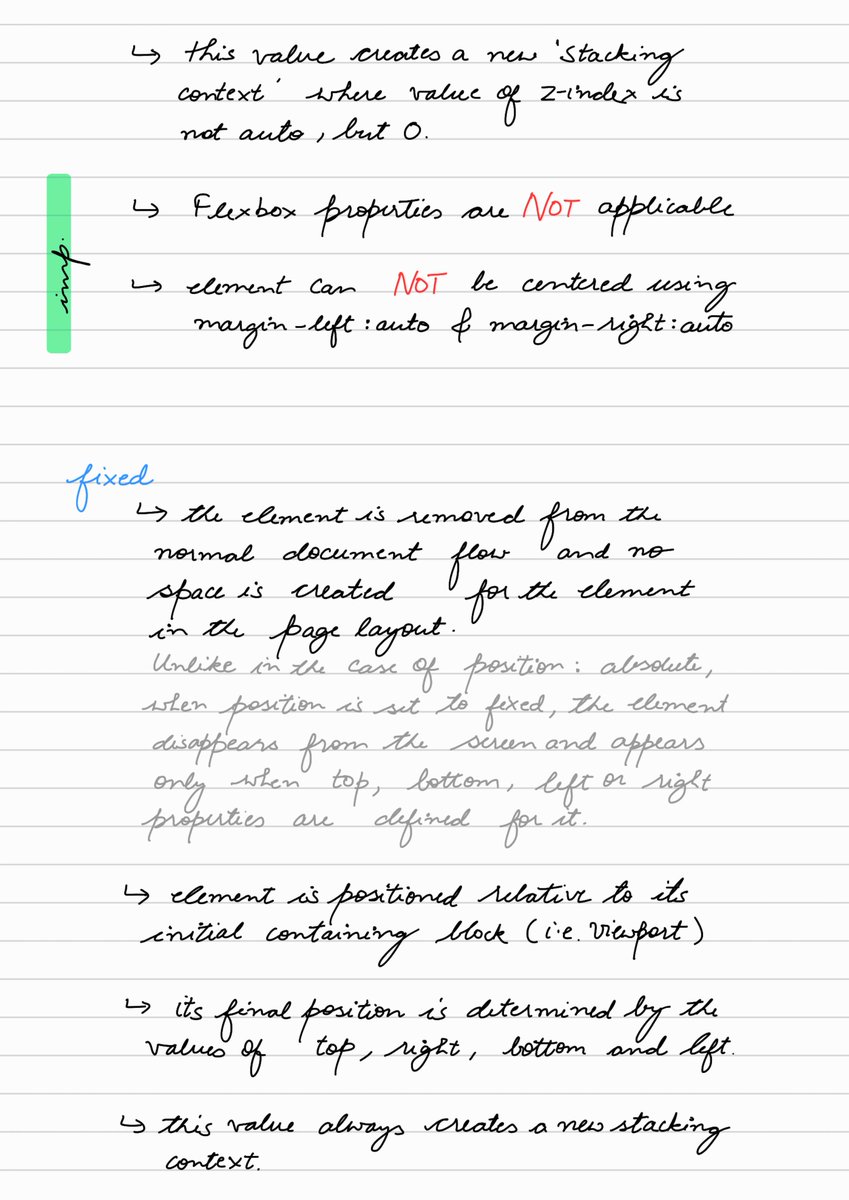 ↳ this value creates a new 'stacking
context' where value of z-index is
not auto, but 0.
imp.
↳ Flexbox properties are NOT applicable
↳ element can NOT be centered using
margin-left:auto & margin-right:auto
fixed
↳ the element is removed from the
normal document flow and no
space is created for the element
in the page layout.
Unlike in the case of position: absolute,
when position is set to fixed, the element
disappears from the screen and appears
only when top, bottom, left or right
properties are defined for it.
↳ element is positioned relative to its
initial containing block (i.e. viewport)
↳ its final position is determined by the
values of top, right, bottom and left.
↳ this value always creates a new stacking
context.